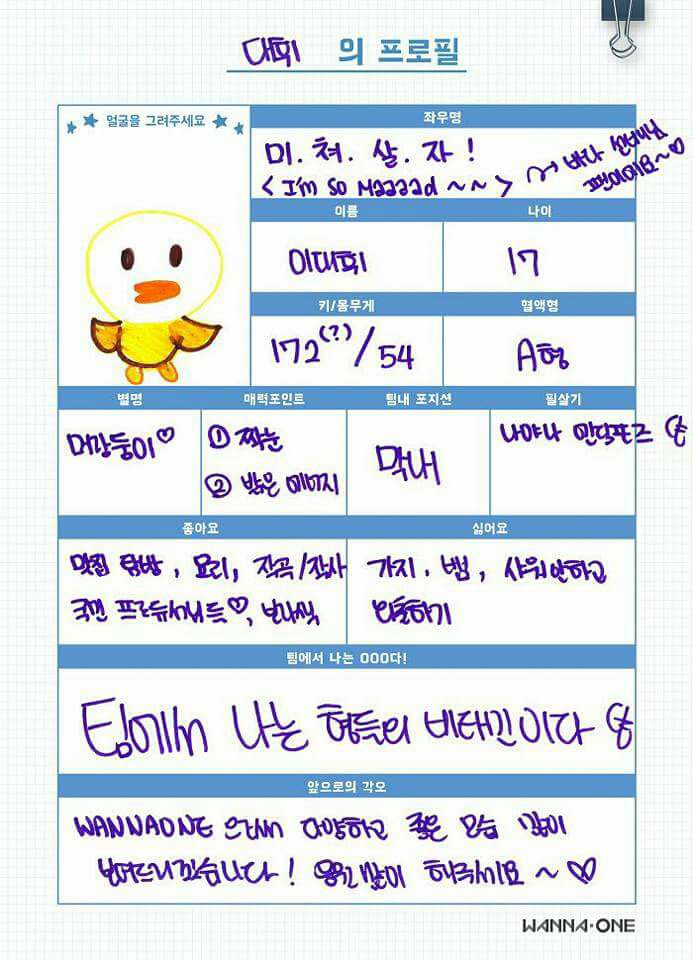 대휘 의 프로필
얼굴을 그려주세요
좌우명
미.쳐.살.자!
< I'm so Maaaad ~~ >
바다 선배님
팬이에요~♡
이름
나이
이대휘
17
키/몸무게
혈액형
172(?)/54
A형
별명
매력포인트
팀내 포지션
필살기
머강둥이♡
① 짝눈
② 밝은 에너지
막내
나야나 엔딕포즈
좋아요
싫어요
맛집 탐방, 요리, 작곡/작사
국민 프로듀서님들♡, 보라색
가지, 뱀, 샤워안하고
외출하기
팀에서 나는 OOO다!
팀에서 나는 형들의 비타민이다
앞으로의 각오
WANNAONE 으로서 다양하고 좋은 모습 많이
보여드리겠습니다! 응원 많이 해주세요~♡
WANNA·ONE